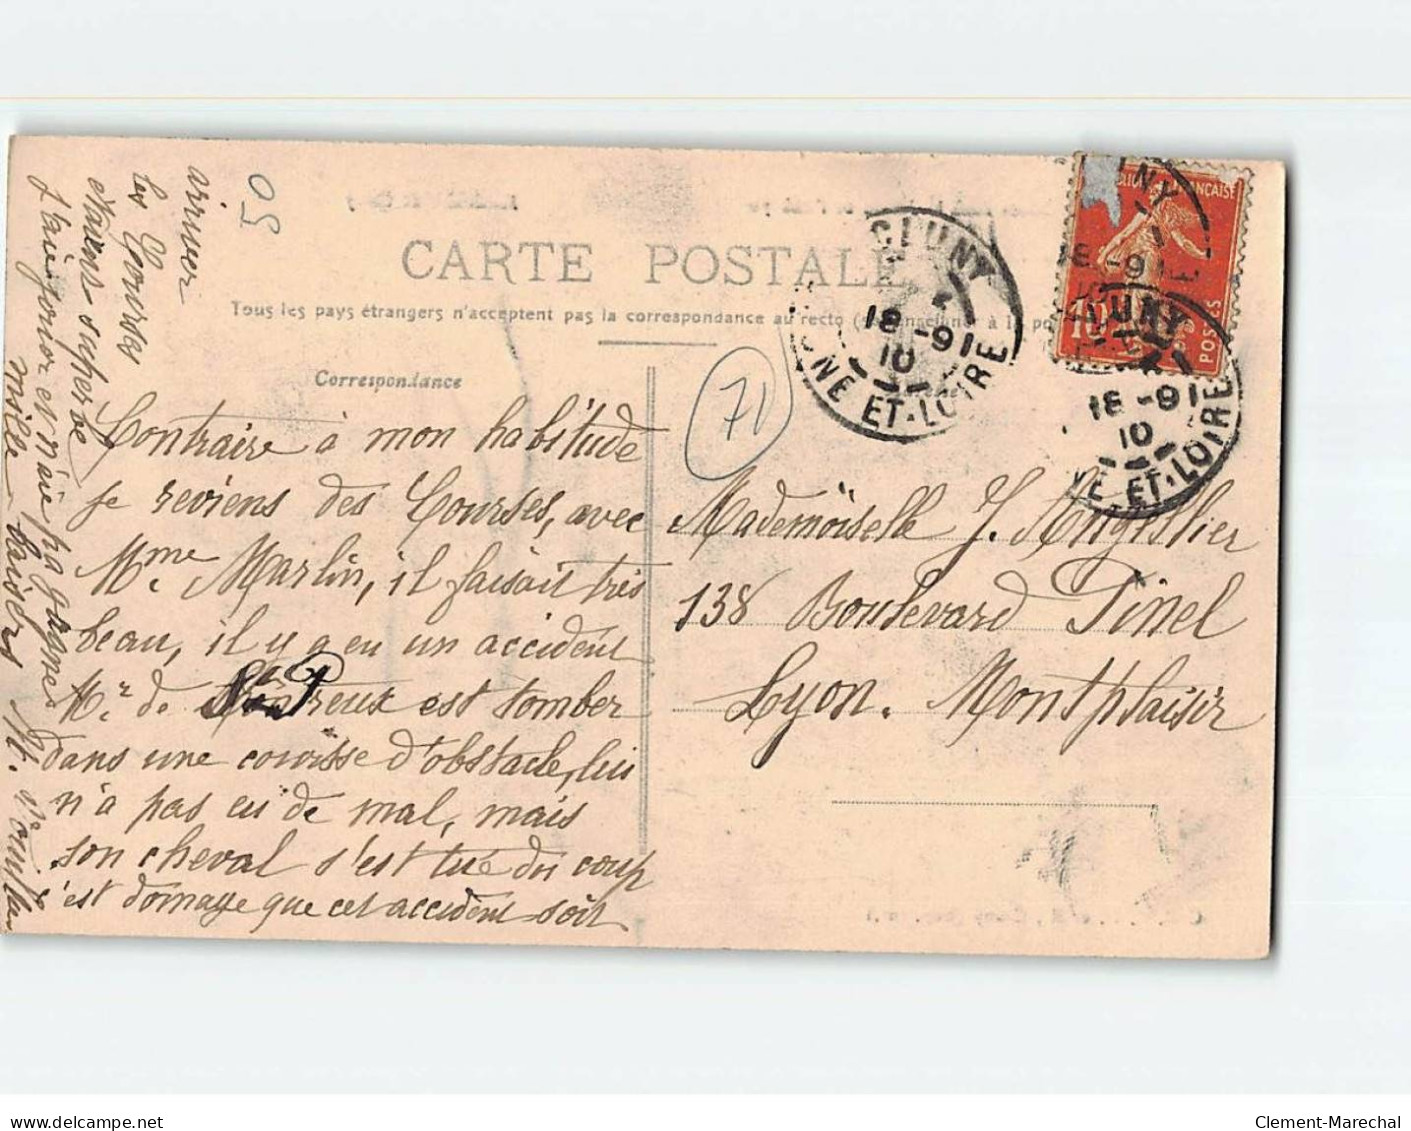 CARTE POSTALE
Tous les pays étrangers n'acceptent pas la correspondance au recto (se renseigner à la po
Correspondance
Contraire à mon habitude
je reviens des Courses, avec
Mme Marlin, il faisait très
beau, il y a eu un accident
Mr. de est tomber
dans une courisse d'obstacle, lui
n'a pas eu de mal, mais
son cheval s'est tué du coup
c'est domage que cet accident soit
arriver
les Courses
étaient superbe
J'ai jouer et n'ai pa gagner
mille baisers M.
Mademöiselle J. Angellier
138 Boulevard Pinel
Lyon. Montplaisir
50
71
CLUNY
18 -9
10
NE ET-LOIRE
FRANÇAISE
10
POSTES
18 -9
CLUNY
18 -9
10
NE ET-LOIRE
www.delcampe.net
Clement-Marechal